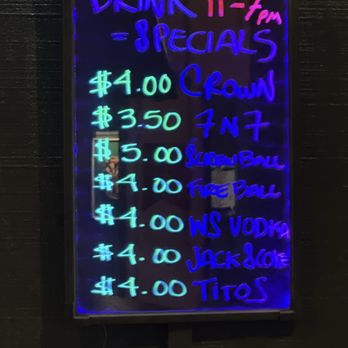 DRINK 11-7PM
=SPECIALS
$4.00 CROWN
$3.50 7 N 7
$5.00 SCREWBALL
$4.00 FIREBALL
$4.00 WS VODKA
$4.00 JACK&COKE
$4.00 TITOS